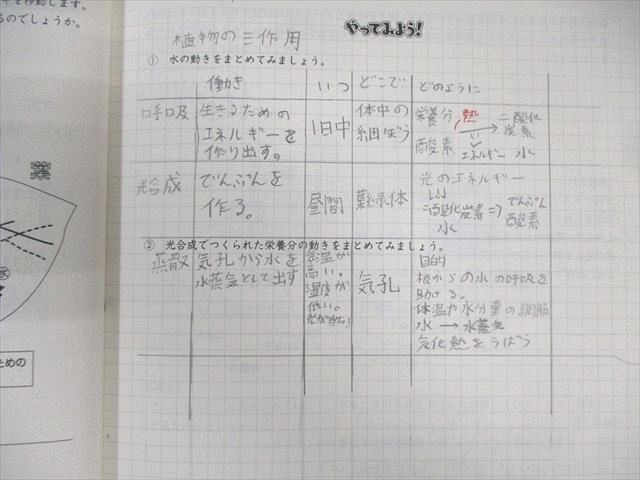 を移動します。
るのでしょうか。
やってみよう!
植物の三作用
① 水の動きをまとめてみましょう。
働き いつ どこで どのように
呼吸 生きるための
エネルギーを
作り出す。
1日中
体中の
細ぼう
栄養分 熱 二酸化
炭素
酸素 エネルギー 水
光合成 でんぷんを
作る。
昼間
葉緑体
光のエネルギー
二酸化炭素 ⇒ でんぷん
水 酸素
② 光合成でつくられた栄養分の動きをまとめてみましょう。
蒸散 気孔から水を
水蒸気として出す
気温が
高い。
湿度が
低い。
気孔
目的
根からの水の呼吸を
助ける。
体温や水分量の調節
水 → 水蒸気
気化熱をうばう
ための